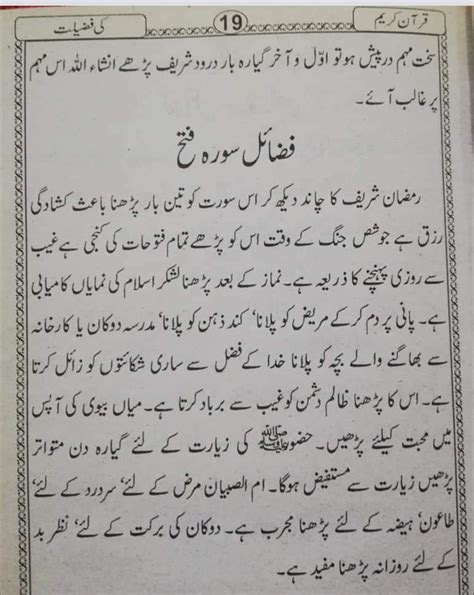 قرآن کریم 19 کی فضیلت
سخت مہم درپیش ہو تو اوّل و آخر گیارہ بار درود شریف پڑھے انشاء اللہ اس مہم
پر غالب آئے۔
فضائل سورہ فتح
رمضان شریف کا چاند دیکھ کر اس سورت کو تین بار پڑھنا باعث کشادگی
رزق ہے جو شخص جنگ کے وقت اس کو پڑھے تمام فتوحات کی کنجی ہے غیب
سے روزی پہنچنے کا ذریعہ ہے۔ نماز کے بعد پڑھنا لشکر اسلام کی نمایاں کامیابی
ہے۔ پانی پر دم کر کے مریض کو پلانا‘ کند ذہن کو پلانا‘ مدرسہ دوکان یا کارخانہ
سے بھاگنے والے بچہ کو پلانا خدا کے فضل سے ساری شکائتوں کو زائل کرتا
ہے۔ اس کا پڑھنا ظالم دشمن کو غیب سے برباد کرتا ہے۔ میاں بیوی کی آپس
میں محبت کیلئے پڑھیں۔ حضور ﷺ کی زیارت کے لئے گیارہ دن متواتر
پڑھیں زیارت سے مستفیض ہوگا۔ ام الصبیان مرض کے لئے‘ سر درد کے لئے‘
طاعون‘ ہیضہ کے لئے پڑھنا مجرب ہے۔ دوکان کی برکت کے لئے‘ نظر بد
کے لئے روزانہ پڑھنا مفید ہے۔